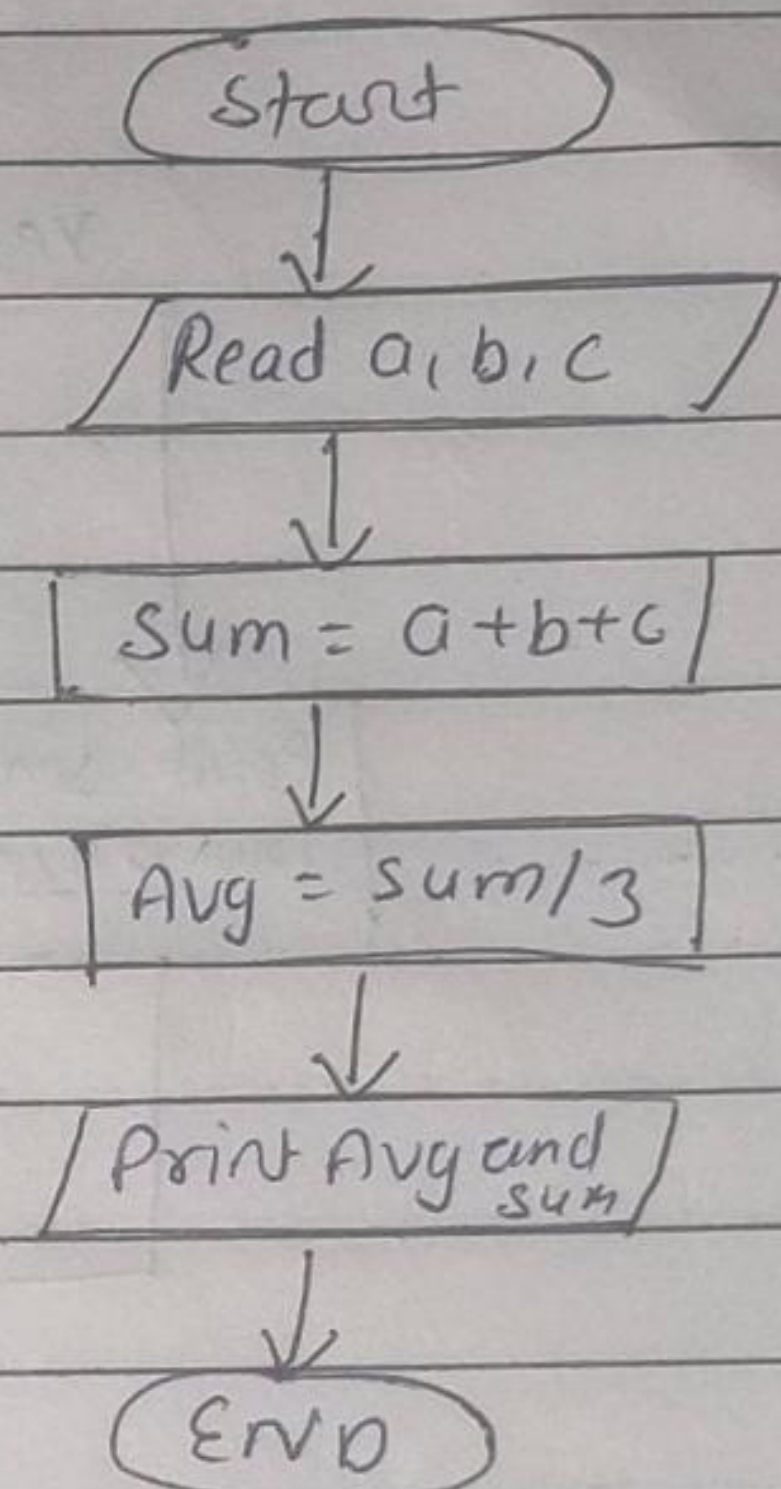 Start
Read a, b, c
Sum = a+b+c
Avg = sum/3
Print Avg and
sum
END